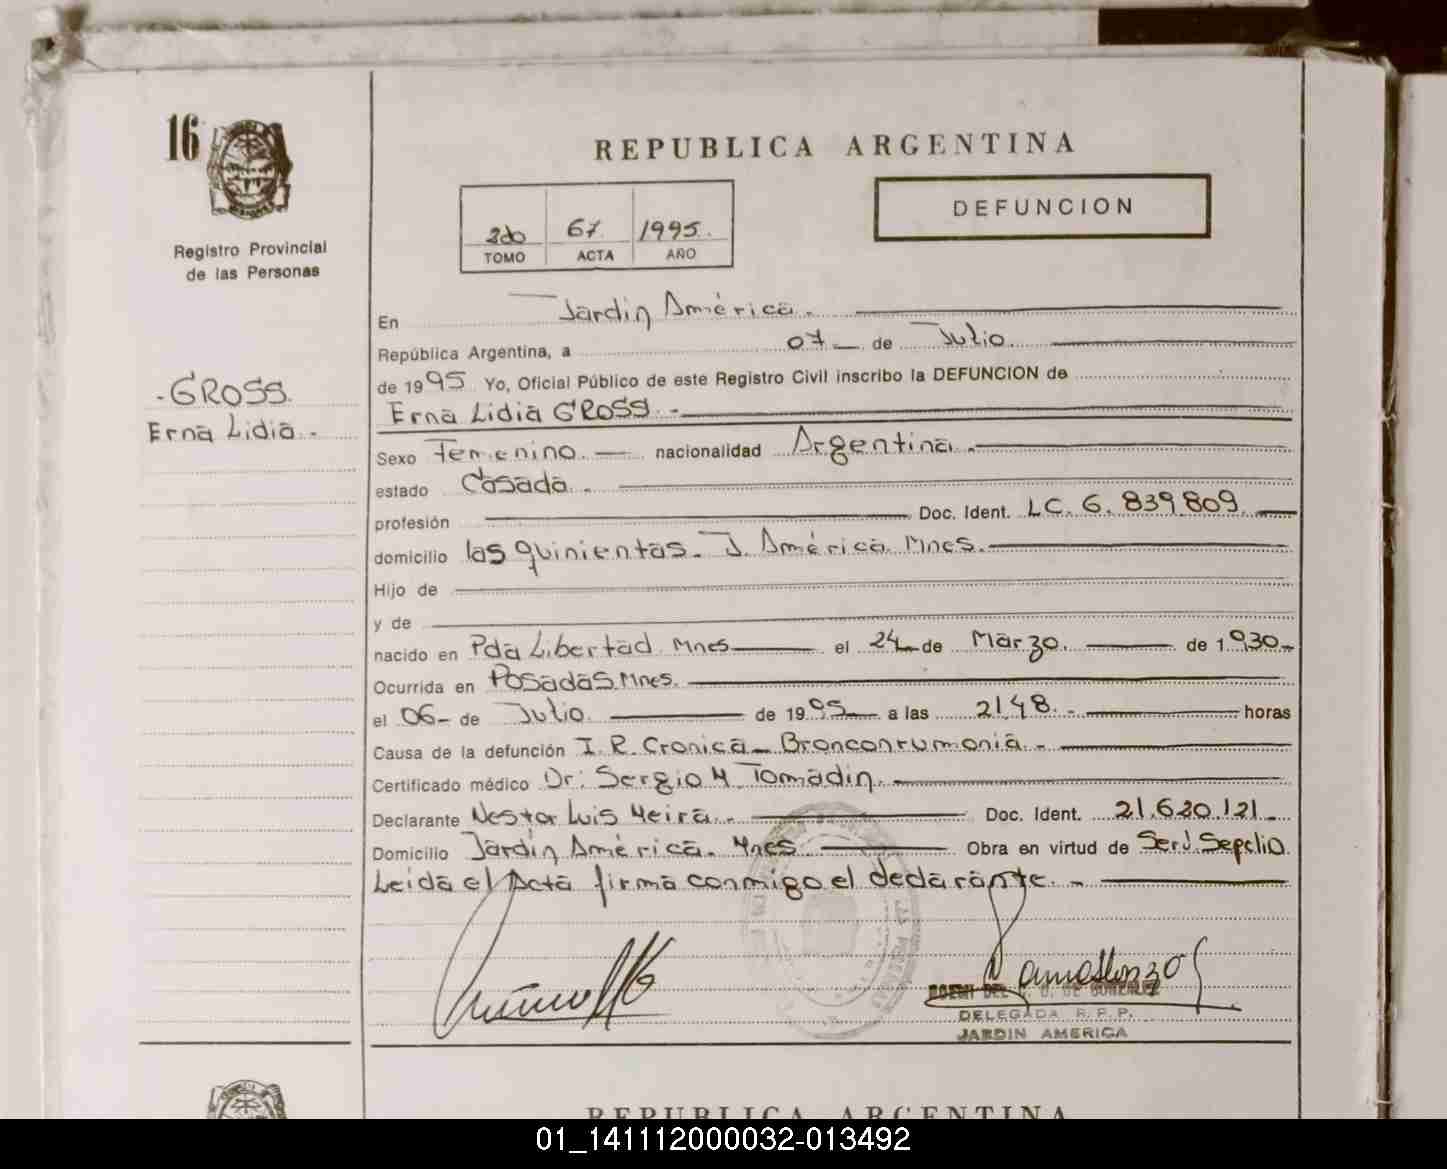 16
REPUBLICA ARGENTINA
DEFUNCION
2do 67. 1995.
TOMO ACTA AÑO
Registro Provincial
de las Personas
En Jardin América.
República Argentina, a 07 de Julio
de 1995 Yo, Oficial Público de este Registro Civil inscribo la DEFUNCION de
- GROSS.
Erna Lidia GROSS. -
Erna Lidia. -
Sexo Femenino. — nacionalidad Argentina. -
estado Casada. -
profesión Doc. Ident. LC. 6. 839.809.
domicilio las quinientas. J. América. Mnes.
Hijo de
y de
nacido en Pda Libertad Mnes el 24 de Marzo. de 1930
Ocurrida en Posadas. Mnes.
el 06 - de Julio. de 1995 a las 21,48. - horas
Causa de la defunción I. R. Cronica - Bronconeumonia. -
Certificado médico Dr: Sergio M. Tomadin.
Declarante Nestor Luis Meira. - Doc. Ident. 21.620.121 -
Domicilio Jardin América. Mnes Obra en virtud de Serv. Sepelio.
Leida el Acta firma conmigo el declarante. -
DELEGADA R. P. P.
JARDIN AMERICA
REPUBLICA ARGENTINA
01_141112000032-013492